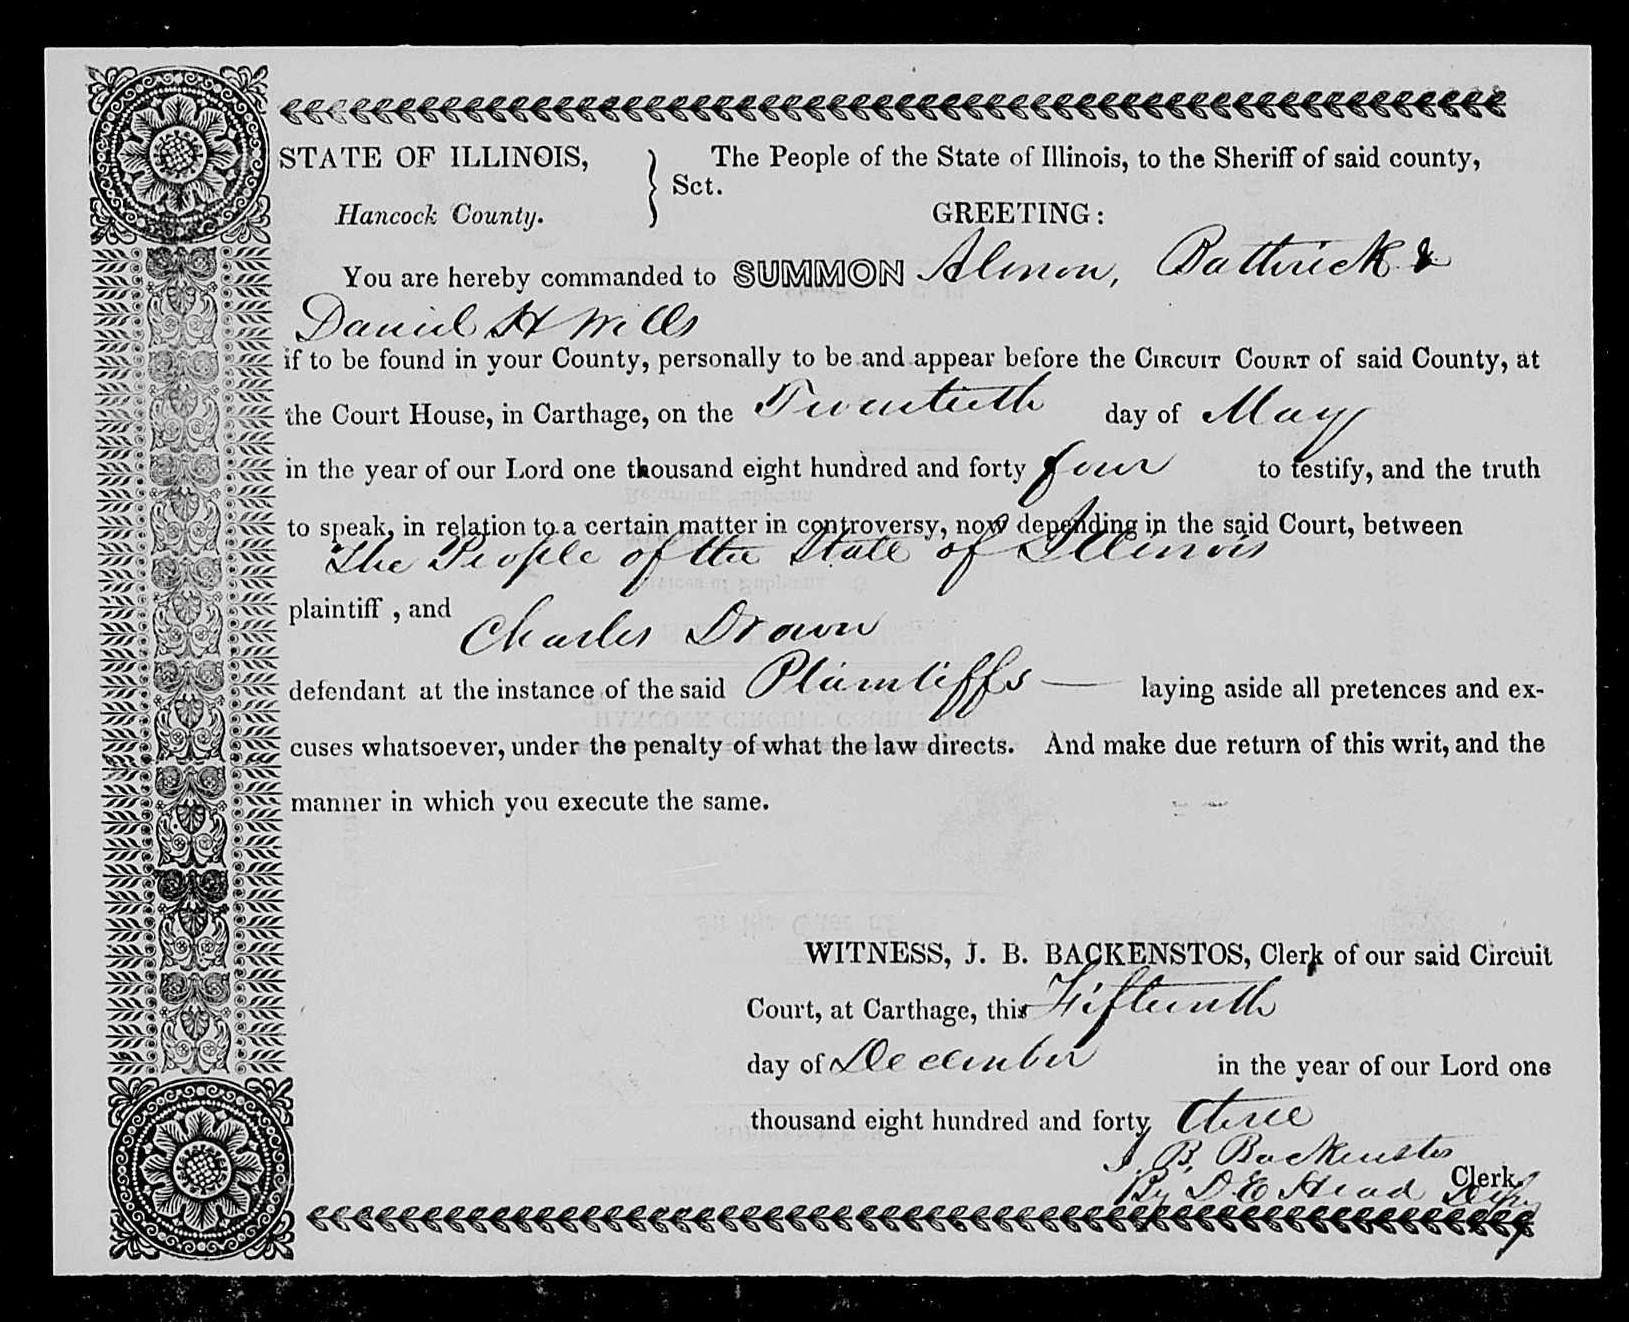 STATE OF ILLINOIS, } Sct. The People of the State of Illinois, to the Sheriff of said county,
Hancock County. GREETING:
You are hereby commanded to SUMMON Almon, Bathrick &
Daniel H Wells
if to be found in your County, personally to be and appear before the CIRCUIT COURT of said County, at
the Court House, in Carthage, on the Twentieth day of May
in the year of our Lord one thousand eight hundred and forty four to testify, and the truth
to speak, in relation to a certain matter in controversy, now depending in the said Court, between
The People of the State of Illinois
plaintiff , and
Charles Drown
defendant at the instance of the said Plaintiffs — laying aside all pretences and ex-
cuses whatsoever, under the penalty of what the law directs. And make due return of this writ, and the
manner in which you execute the same.
WITNESS, J. B. BACKENSTOS, Clerk of our said Circuit
Court, at Carthage, this Fifteenth
day of December in the year of our Lord one
thousand eight hundred and forty three
J. B. Backenstos
Clerk.
By D. E. Head Depty